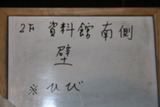 2F 資料館 南側
壁
※ ひび